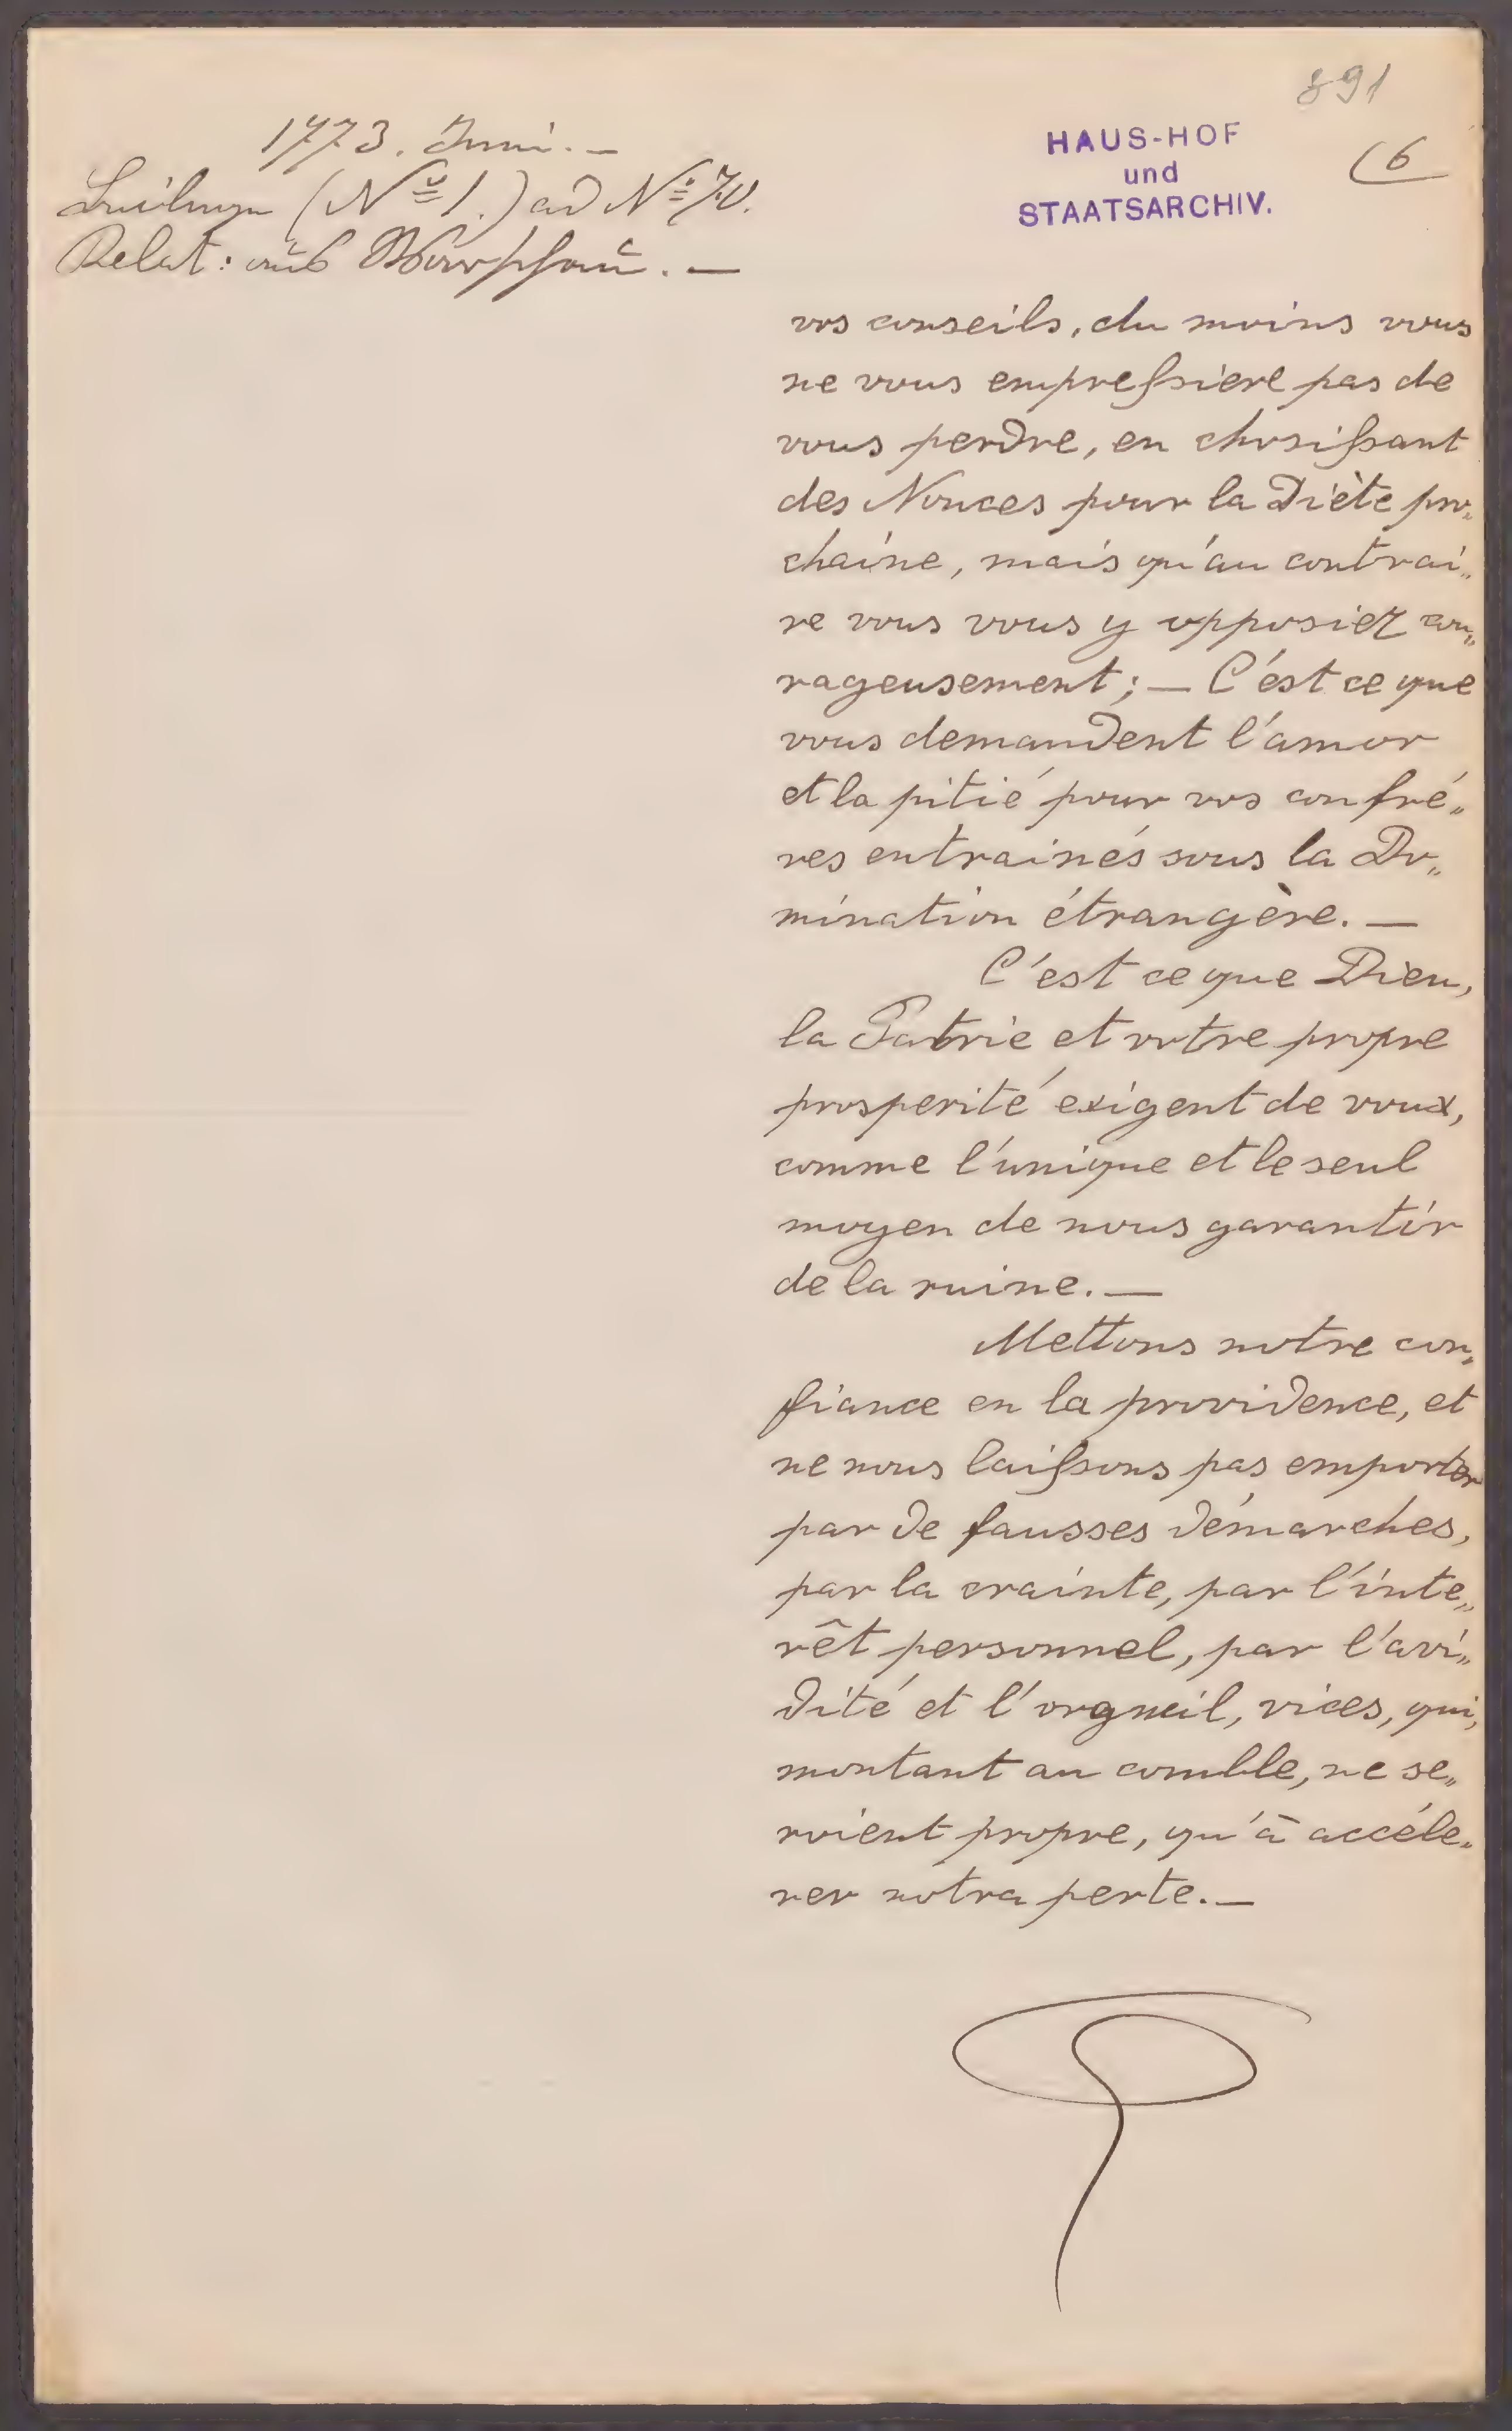 891
HAUS-HOF
und
STAATSARCHIV.
(6
1773. Juni. —
Beilage (Nº 1.) ad Nº 70.
Relat: aus Warschau. —
vos conseils, du moins vous
ne vous empressierl pas de
vous perdre, en choisissant
des Nonces pour la Diète pro„
chaine, mais qu'au contrai„
re vous vous y opposiez cou„
rageusement; — C'est ce que
vous demandent l'amor
et la pitié pour vos confré„
res entrainés sous la Do„
mination étrangère. —
C'est ce que Dieu,
la Patrie et votre propre
prosperité exigent de voux,
comme l'unique et le seul
moyen de nous garantir
de la ruine. —
Mettons notre con„
fiance en la providence, et
ne nous laissons pas emporter
par de fausses démarches,
par la crainte, par l'inte„
rêt personnel, par l'avi„
dité et l'orgueil, vices, qui,
montant au comble, ne se„
roient propre, qu'à accéle„
rer notra perte. —